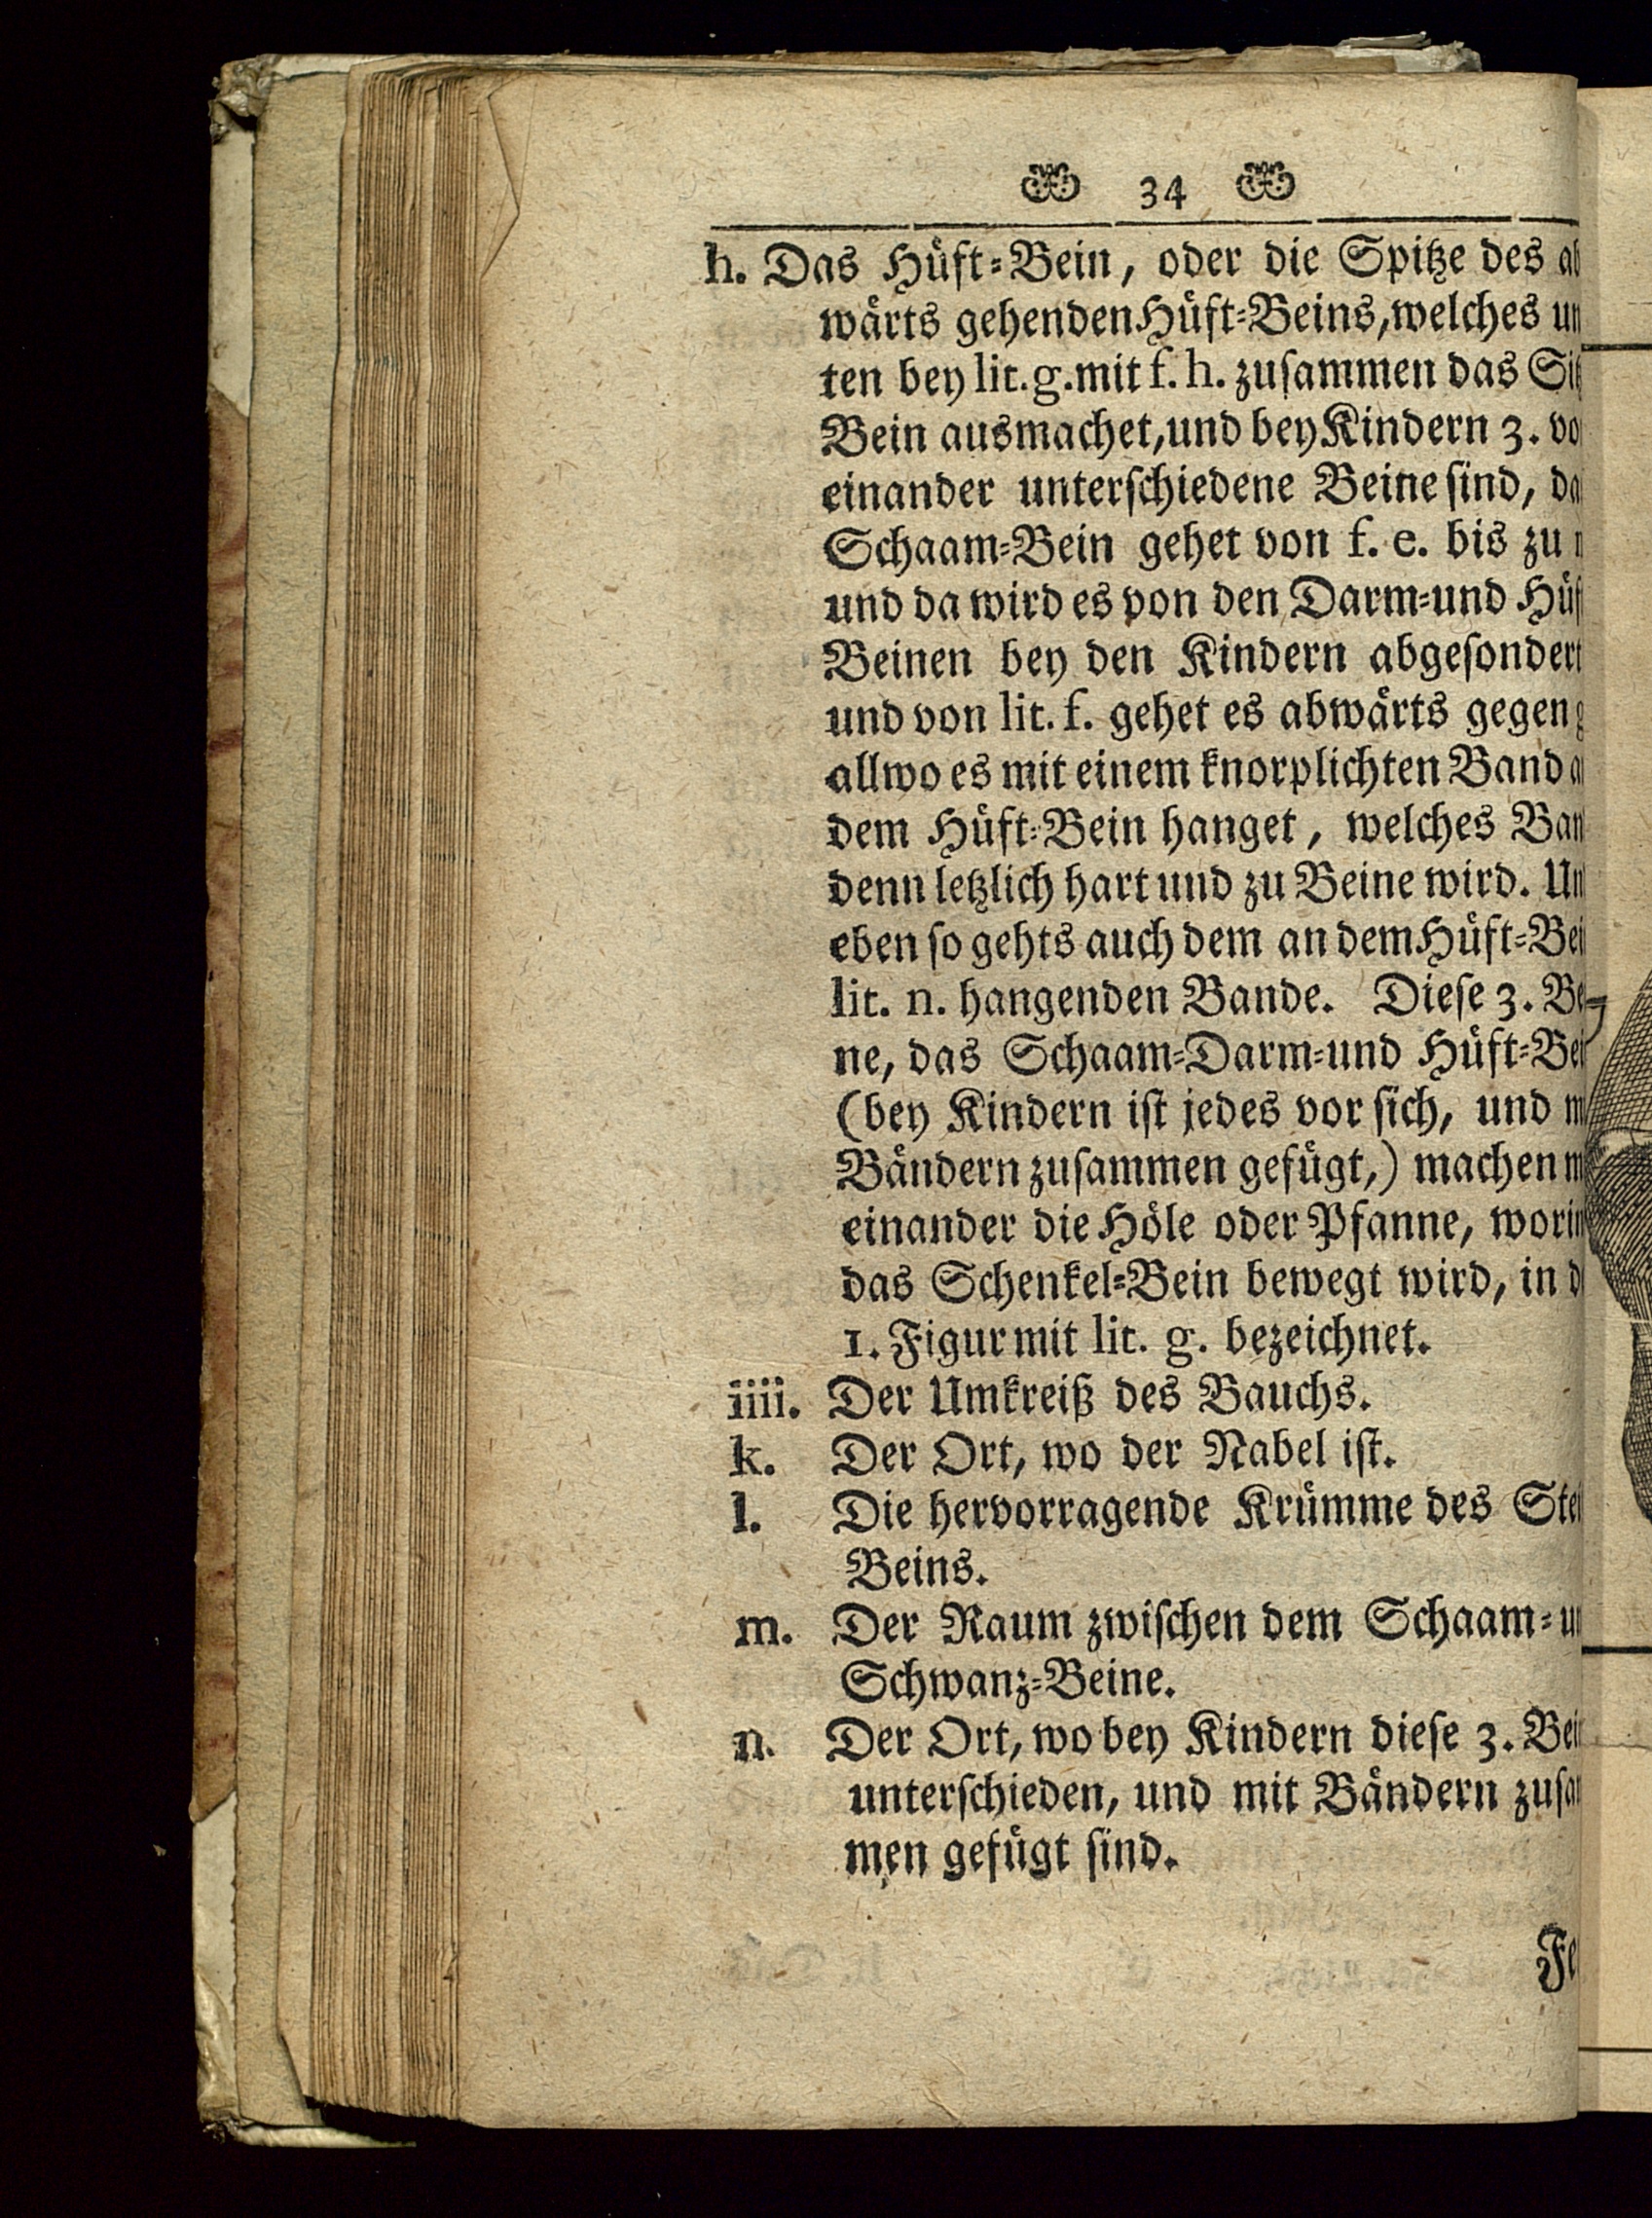 34
h. Das Hüft-Bein, oder die Spitze des ab
wärts gehenden Hüft-Beins, welches un
ten bey lit. g. mit f. h. zusammen das Sitz
Bein ausmachet, und bey Kindern 3. vo
einander unterschiedene Beine sind, da
Schaam-Bein gehet von f. e. bis zu
und da wird es von den Darm-und Hüf
Beinen bey den Kindern abgesondert
und von lit. f. gehet es abwärts gegen g
allwo es mit einem knorplichten Band a
dem Hüft-Bein hanget, welches Ban
denn letzlich hart und zu Beine wird. Un
eben so gehts auch dem an dem Hüft-Bei
lit. n. hangenden Bande. Diese 3. Be
ne, das Schaam-Darm-und Hüft-Bei
(bey Kindern ist jedes vor sich, und m
Bändern zusammen gefügt,) machen m
einander die Höle oder Pfanne, worin
das Schenkel-Bein bewegt wird, in d
1. Figur mit lit. g. bezeichnet.
iiii. Der Umkreiß des Bauchs.
k. Der Ort, wo der Nabel ist.
l. Die hervorragende Krümme des Ste
Beins.
m. Der Raum zwischen dem Schaam-un
Schwanz-Beine.
n. Der Ort, wo bey Kindern diese 3. Bei
unterschieden, und mit Bändern zusam
men gefügt sind.
Fe